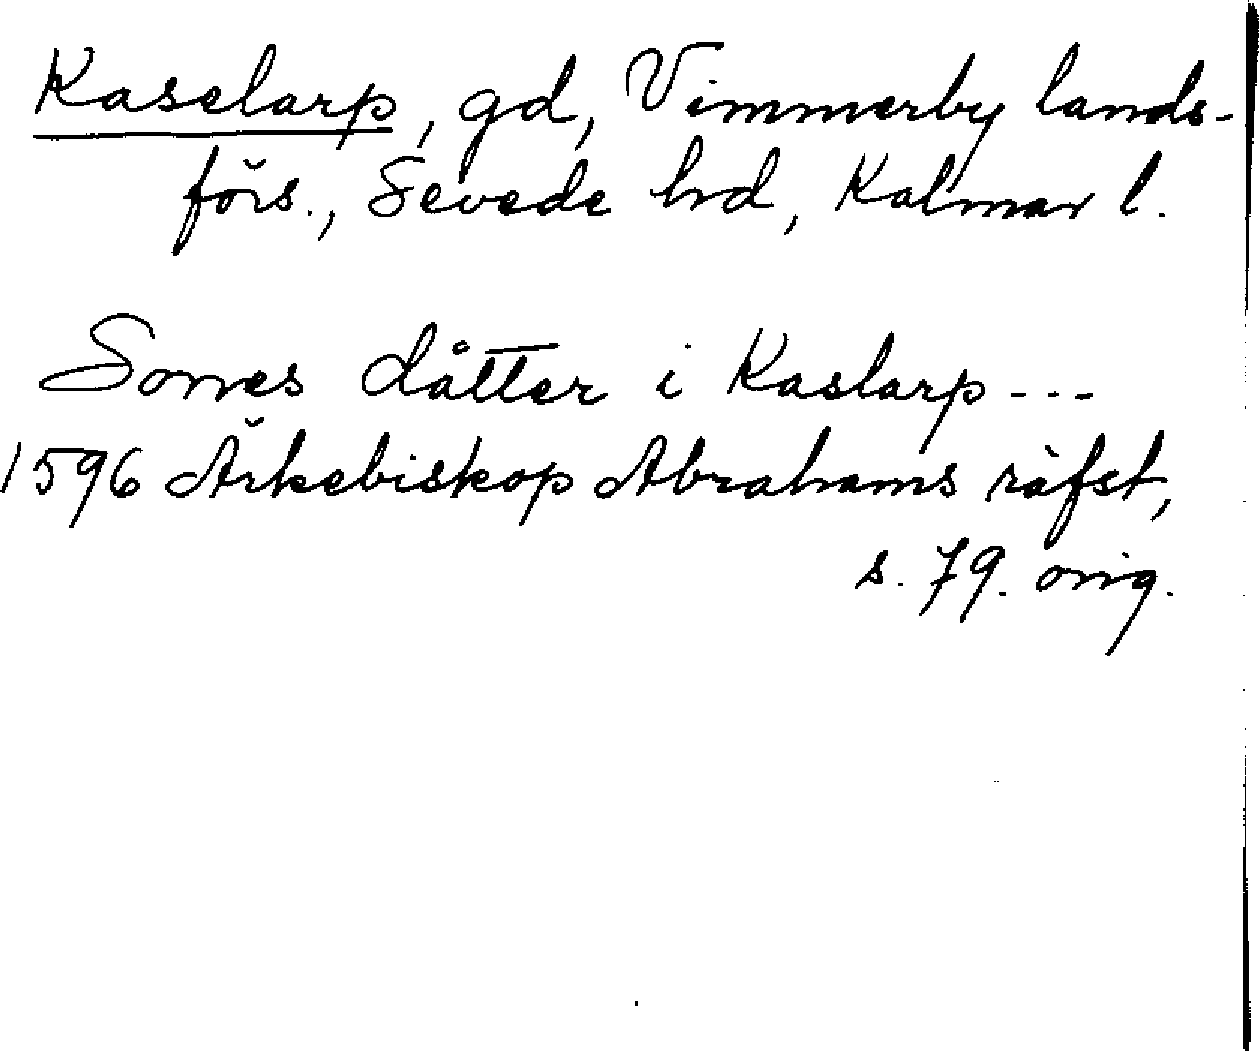 Kaselarp, gd, Vimmerby lands-
förs., Sevede hd, Kalmar l.
Sones dåtter i Kaslarp ---
1596 Ärkebiskop Abrahams räfst,
s. 79. orig.